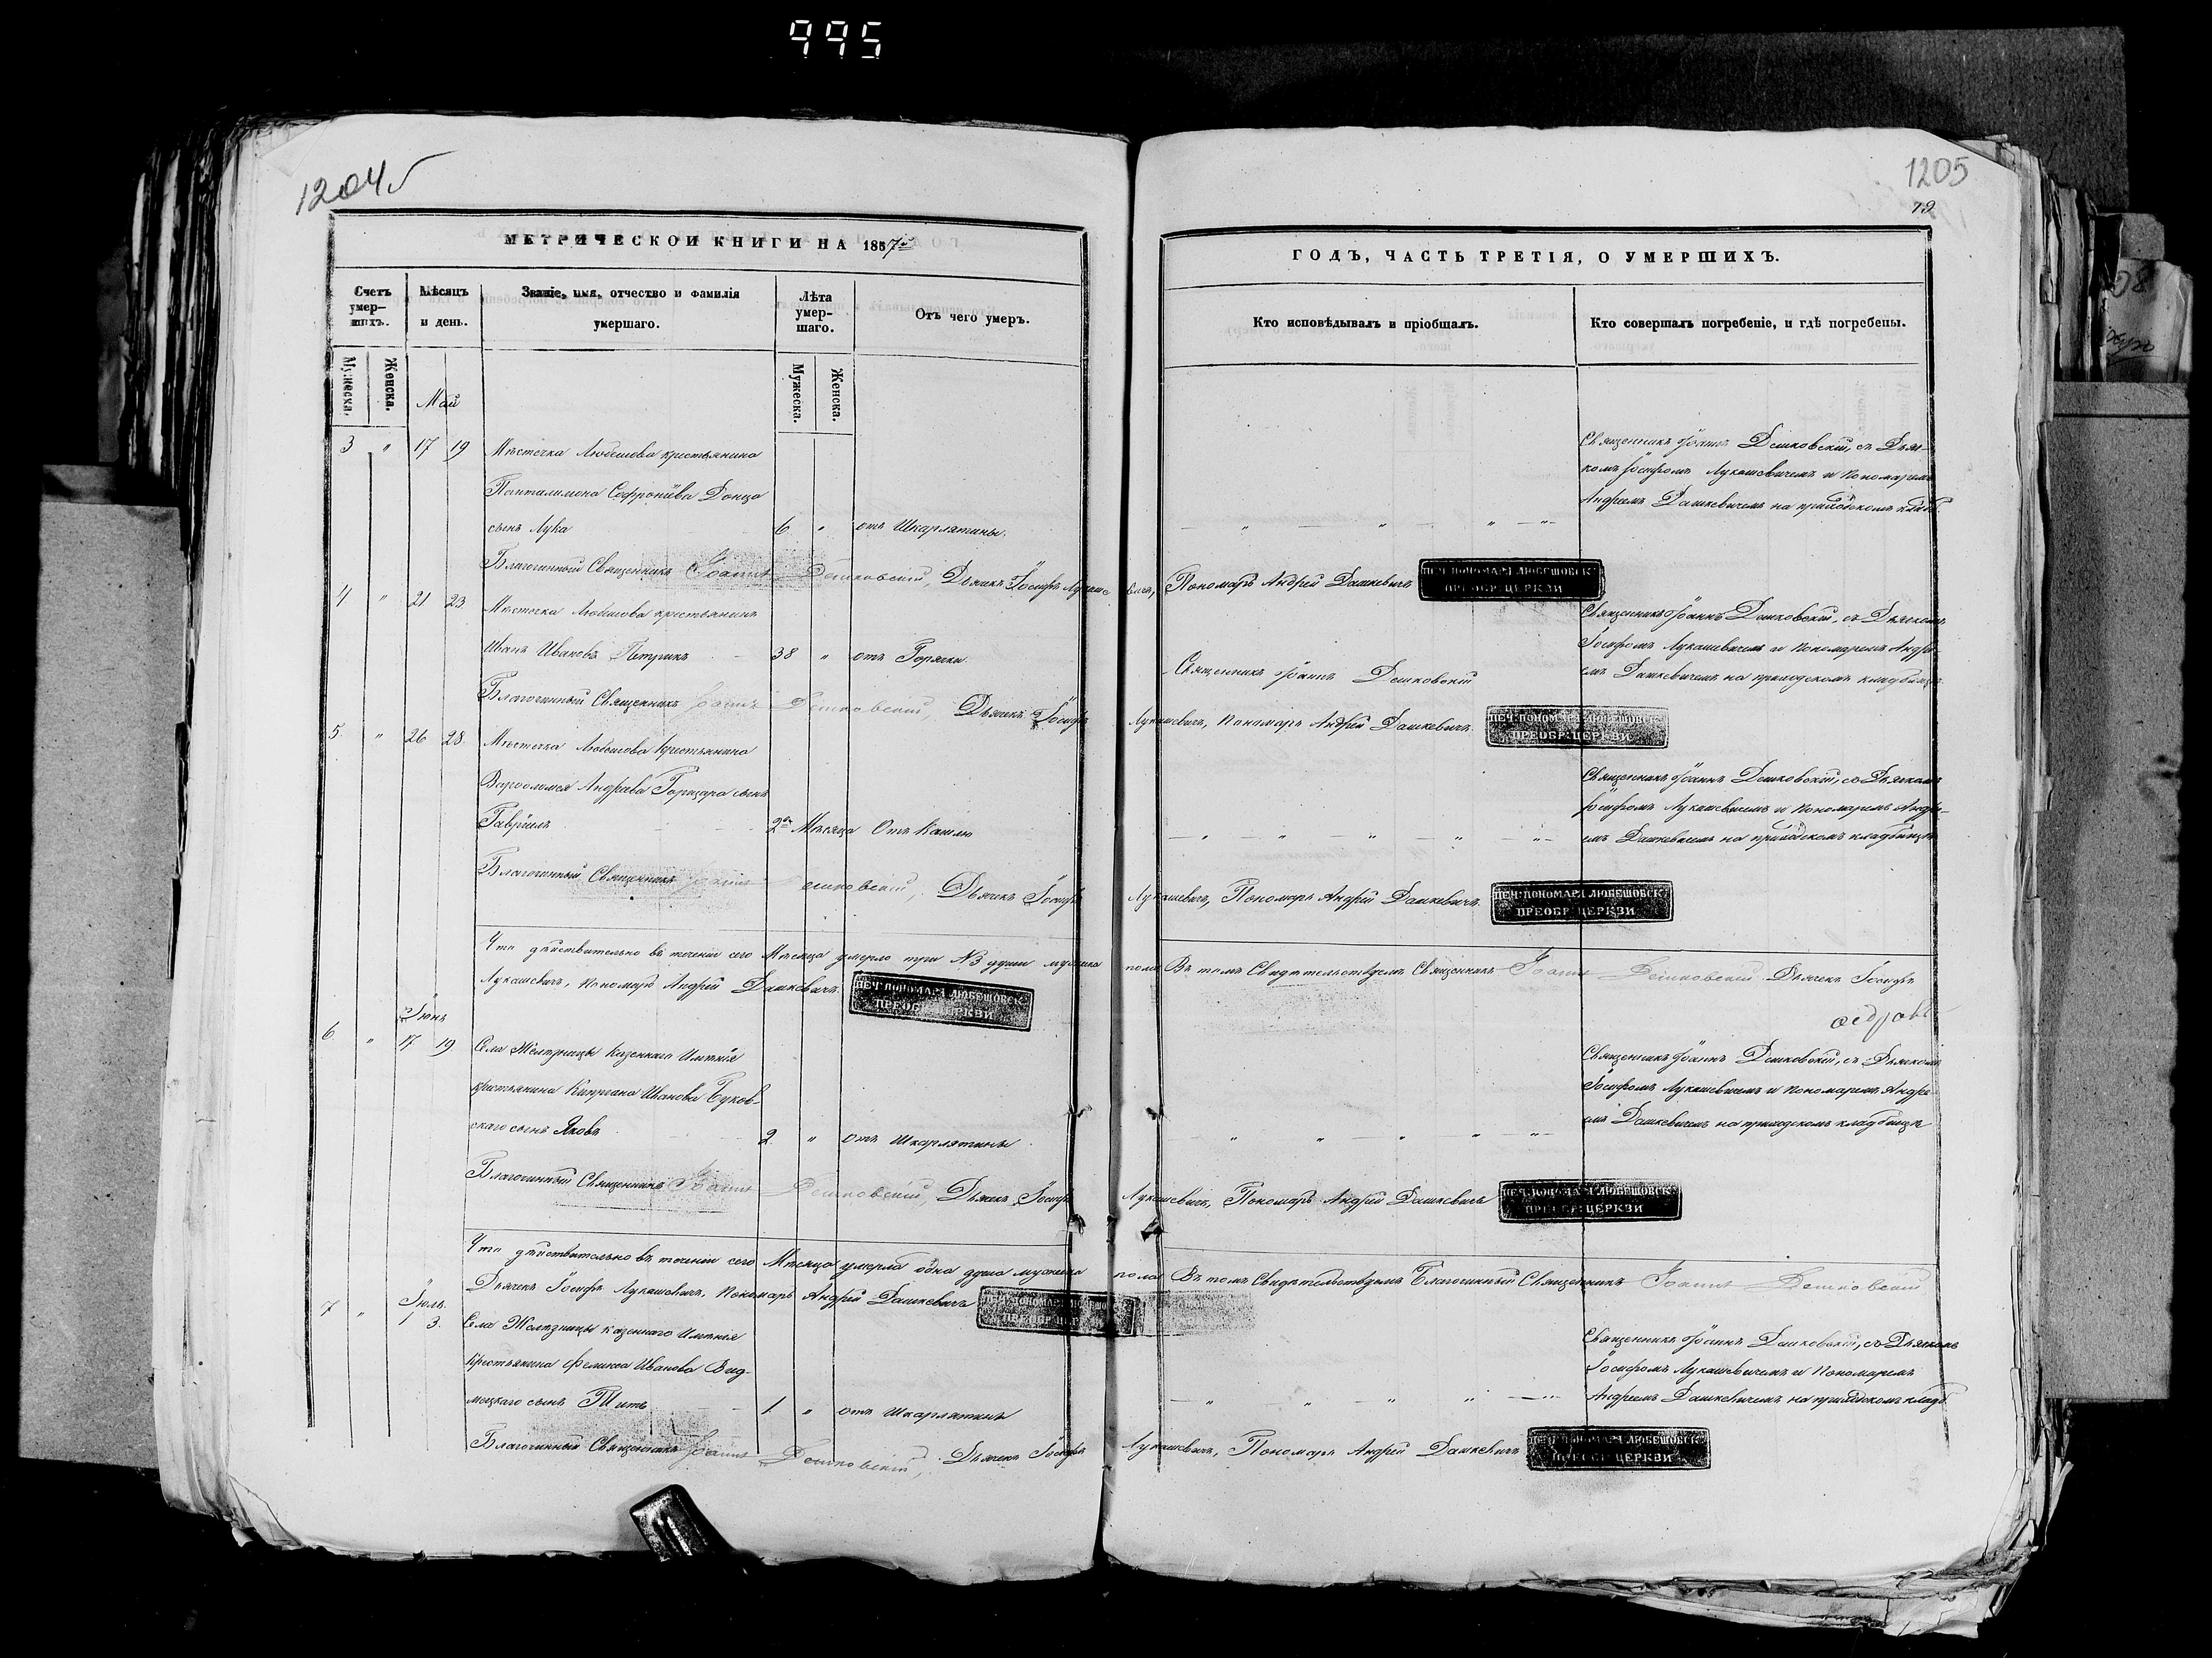 995
1204
1205
79
МЕТРИЧЕСКОЙ КНИГИ НА 1857й
ГОДЪ, ЧАСТЬ ТРЕТІЯ, О УМЕРШИХЪ.
Счетъ умер-шихъ.
Мужеска.
Женска.
Мѣсяцъ и день.
Званіе, имя, отчество и фамилія умершаго.
Лѣта умер-шаго.
Мужеска.
Женска.
Отъ чего умеръ.
Кто исповѣдывалъ и пріобщалъ.
Кто совершалъ погребеніе, и гдѣ погребены.
Май
3 " 17 19 Мѣстечка Любешова крестьянина
Панталимона Софроніева Донца
сынъ Лука 6 " отъ Шкарлятины.
Священникъ Іоаннъ Дешковскій, съ Дьяч-
комъ Іосифомъ Лукашевичемъ и Пономаремъ
Андреемъ Дашкевичемъ на приходскомъ кладб.
Благочинный Священникъ Іоаннъ Дешковскій, Дьячекъ Іосифъ Лукашевичъ, Пономарь Андрей Дашкевичъ
ПЕЧ: ПОНОМАРЯ ЛЮБЕШОВСК:
ПРЕОБР: ЦЕРКВИ
4 " 21 23 Мѣстечка Любешова крестьянинъ
Иванъ Ивановъ Петрикъ 38 " отъ Горячки.
Священникъ Іоаннъ Дешковскій
Священникъ Іоаннъ Дешковскій, съ Дьячкомъ
Іосифомъ Лукашевичемъ и Пономаремъ Андре-
емъ Дашкевичемъ на приходскомъ кладбищѣ
Благочинный Священникъ Іоаннъ Дешковскій, Дьячекъ Іосифъ Лукашевичъ, Пономарь Андрей Дашкевичъ
ПЕЧ: ПОНОМАРЯ ЛЮБЕШОВСК:
ПРЕОБР: ЦЕРКВИ
5 " 26 28. Мѣстечка Любешова Крестьянина
Варфоломея Андреева сынъ
Гавріилъ 2хъ Мѣсяца Отъ Кашлю
Священникъ Іоаннъ Дешковскій, съ Дьячкомъ
Іосифомъ Лукашевичемъ и Пономаремъ Андре-
емъ Дашкевичемъ на приходскомъ кладбищѣ
Благочинный Священникъ Іоаннъ Дешковскій, Дьячекъ Іосифъ Лукашевичъ, Пономарь Андрей Дашкевичъ
ПЕЧ: ПОНОМАРЯ ЛЮБЕШОВСК:
ПРЕОБР: ЦЕРКВИ
Что дѣйствительно въ теченіи сего Мѣсяца умерло три №3 души мужеска пола Въ томъ Свидетельствуемъ Священникъ Іоаннъ Дешковскій Дьячекъ Іосифъ
Лукашевичъ, Пономарь Андрей Дашкевичъ.
ПЕЧ: ПОНОМАРЯ ЛЮБЕШОВСК:
ПРЕОБР: ЦЕРКВИ
Іюнь
6 " 17 19 Села Желѣзницы Казеннаго Имѣнія
крестьянина Кипріана Иванова Буков-
скаго сынъ Яковъ 2 " отъ Шкарлятины
Священникъ Іоаннъ Дешковскій, съ Дьячкомъ
Іосифомъ Лукашевичемъ и Пономаремъ Андре-
емъ Дашкевичемъ на приходскомъ кладбищѣ
Благочинный Священникъ Іоаннъ Дешковскій, Дьячекъ Іосифъ Лукашевичъ, Пономарь Андрей Дашкевичъ
ПЕЧ: ПОНОМАРЯ ЛЮБЕШОВСК:
ПРЕОБР: ЦЕРКВИ
Что дѣйствительно въ теченіи сего Мѣсяца умерла одна душа мужеска пола Въ томъ Свидетельствуемъ Благочинный Священникъ Іоаннъ Дешковскій
Дьячекъ Іосифъ Лукашевичъ, Пономарь Андрей Дашкевичъ
ПЕЧ: ПОНОМАРЯ ЛЮБЕШОВСК:
ПРЕОБР: ЦЕР
Іюль.
7 " 1 3. Села Желѣзницы казеннаго Имѣнія
Крестьянина Феликса Иванова
сынъ Титъ 1 " отъ Шкарлятины
Священникъ Іоаннъ Дешковскій, съ Дьячкомъ
Іосифомъ Лукашевичемъ и Пономаремъ
Андреемъ Дашкевичемъ на приходскомъ кладб
Благочинный Священникъ Іоаннъ Дешковскій, Дьячекъ Іосифъ Лукашевичъ, Пономарь Андрей Дашкевичъ
ПЕЧ: ПОНОМАРЯ ЛЮБЕШОВСК:
ПРЕОБР: ЦЕРКВИ